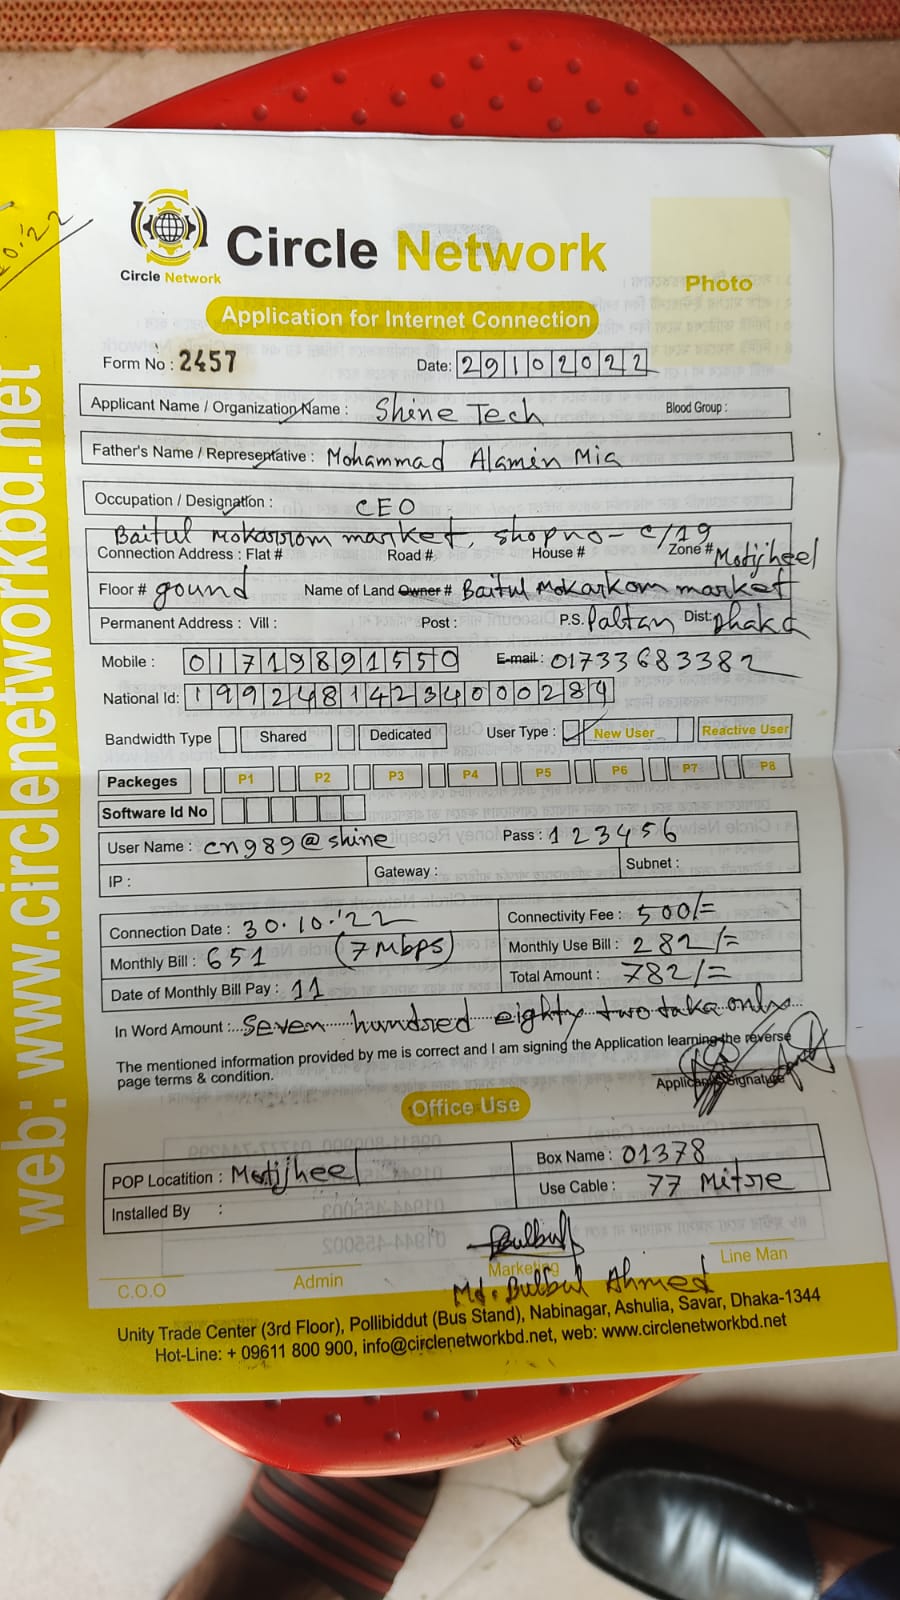 0.'22
Circle Network
Circle Network
Photo
Application for Internet Connection
Form No : 2457
Date: 29102022
Applicant Name / Organization Name : Shine Tech
Blood Group :
Father's Name / Representative : Mohammad Alamin Mia
Occupation / Designation : CEO
Baitul Mokarrom market, shop no- C/19
Connection Address : Flat # Road # House # Zone # Motijheel
Floor # gound Name of Land Owner # Baitul Mokarkom market
Permanent Address : Vill : Post : P.S. Paltan Dist: Dhaka
Mobile : 01719891550 E-mail : 01733683382
National Id: 19924814234000284
Bandwidth Type Shared Dedicated User Type : New User Reactive User
Packeges P1 P2 P3 P4 P5 P6 P7 P8
Software Id No
User Name : cn989@shine Pass : 123456
IP : Gateway : Subnet :
Connection Date : 30.10.'22 Connectivity Fee : 500/=
Monthly Bill : 651 (7 Mbps) Monthly Use Bill : 282/=
Date of Monthly Bill Pay : 11 Total Amount : 782/=
In Word Amount : Seven hundred eighty two taka only
The mentioned information provided by me is correct and I am signing the Application learning the reverse
page terms & condition.
Applicant Signature
Office Use
POP Locatition : Motijheel Box Name : 01378
Installed By : Use Cable : 77 Mitre
Bulbul
C.O.O Admin Marketing Line Man
Md. Bulbul Ahmed
Unity Trade Center (3rd Floor), Pollibiddut (Bus Stand), Nabinagar, Ashulia, Savar, Dhaka-1344
Hot-Line: + 09611 800 900, info@circlenetworkbd.net, web: www.circlenetworkbd.net
web: www.circlenetworkbd.net